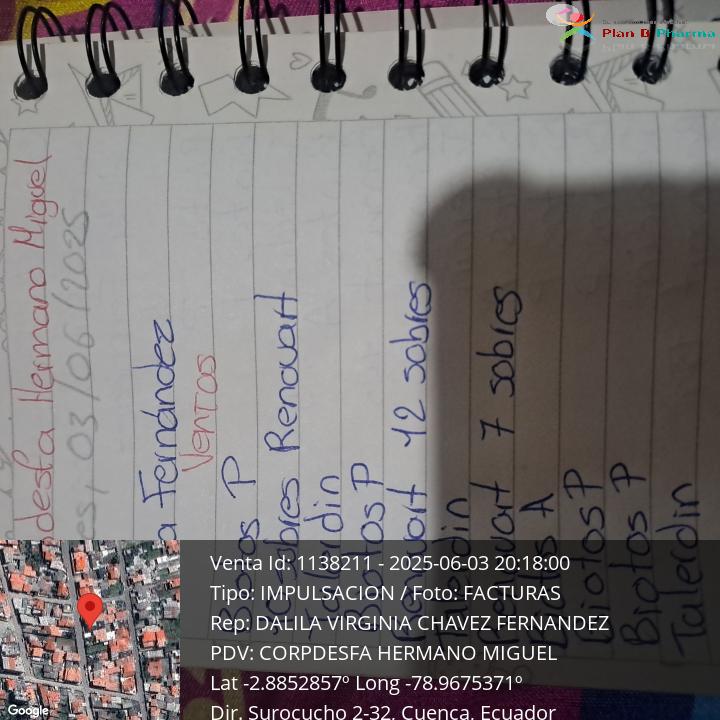 Plan B Pharma
desfa Hermano Miguel
es, 03/06/2025
a Fernández
Ventas
P
sobres Renovart
Biotos P
Renovart 12 sobres
Renovart 7 sobres
A
Biotos P
Biotos P
Talerdin
Venta Id: 1138211 - 2025-06-03 20:18:00
Tipo: IMPULSACION / Foto: FACTURAS
Rep: DALILA VIRGINIA CHAVEZ FERNANDEZ
PDV: CORPDESFA HERMANO MIGUEL
Lat -2.8852857º Long -78.9675371º
Dir. Surocucho 2-32, Cuenca, Ecuador
Google